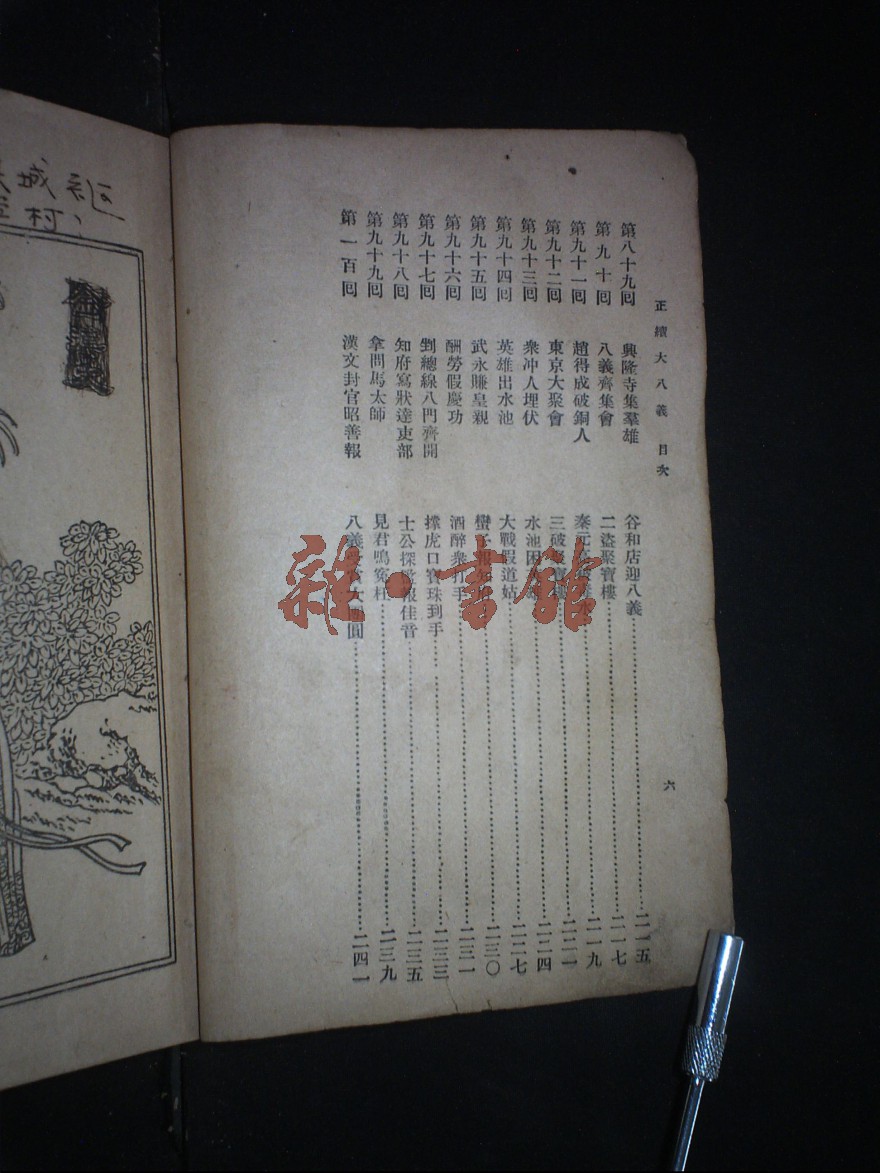 正續大八義 目次
六
第八十九回 興隆寺集羣雄 谷和店迎八義 二一五
第九十回 八義齊集會 二盜聚寶樓 二一七
第九十一回 趙得成破銅人 秦元 二一九
第九十二回 東京大聚會 三破 二二一
第九十三回 衆冲人埋伏 水池困 二二四
第九十四回 英雄出水池 大戰假道姑 二二七
第九十五回 武永賺皇親 蠻子報知 二三〇
第九十六回 酬勞假慶功 酒醉衆打手 二三一
第九十七回 剉總線八門齊開 撑虎口寶珠到手 二三三
第九十八回 知府寫狀達吏部 士公探 報佳音 二三五
第九十九回 拿問馬太師 見君鳴寃枉 二三九
第一百回 漢文封官昭善報 八義受 圓 二四一
城
村
雜·書館